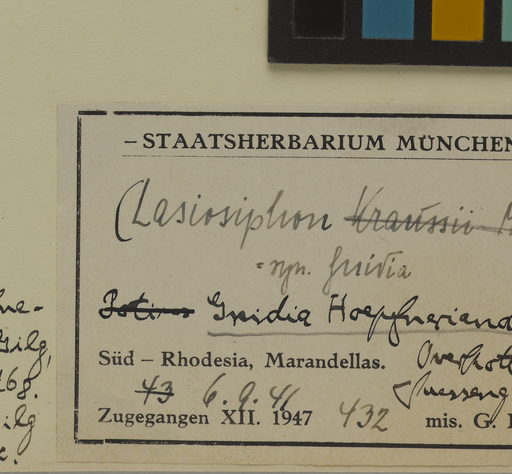 – STAATSHERBARIUM MÜNCHEN
(Lasiosiphon Kraussii
= syn. Gnidia
Gnidia Hoepfneriana
Süd – Rhodesia, Marandellas.
43 6. 9. 41
Zugegangen XII. 1947 432 mis. G.
Gilg,
268.